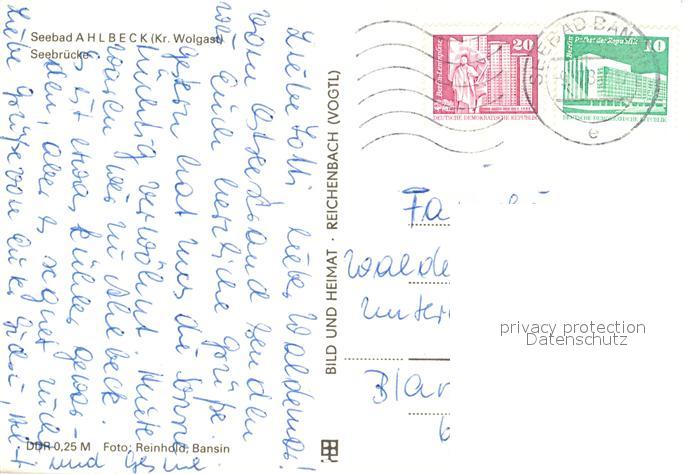 Seebad AHLBECK (Kr. Wolgast)
Seebrücke
Liebe Lotti, liebe Waldemar!
Vom Ostseestrand senden
wir Euch herzliche Grüße
gestern hat uns die Sonne
tüchtig verwöhnt. Heute
waren wir in Ahlbeck.
Es ist etwas kühler gewor-
den, aber es regnet nicht
Liebe Grüße von
und
DDR 0,25 M Foto: Reinhold, Bansin
BILD UND HEIMAT · REICHENBACH (VOGTL)
20
Berlin-Leninplatz
DEUTSCHE DEMOKRATISCHE REPUBLIK
SEEBAD BAN
e
10
Berlin Palast der Republik
DEUTSCHE DEMOKRATISCHE REPUBLIK
Fa
Walde
Unter
Blan
6
privacy protection
Datenschutz